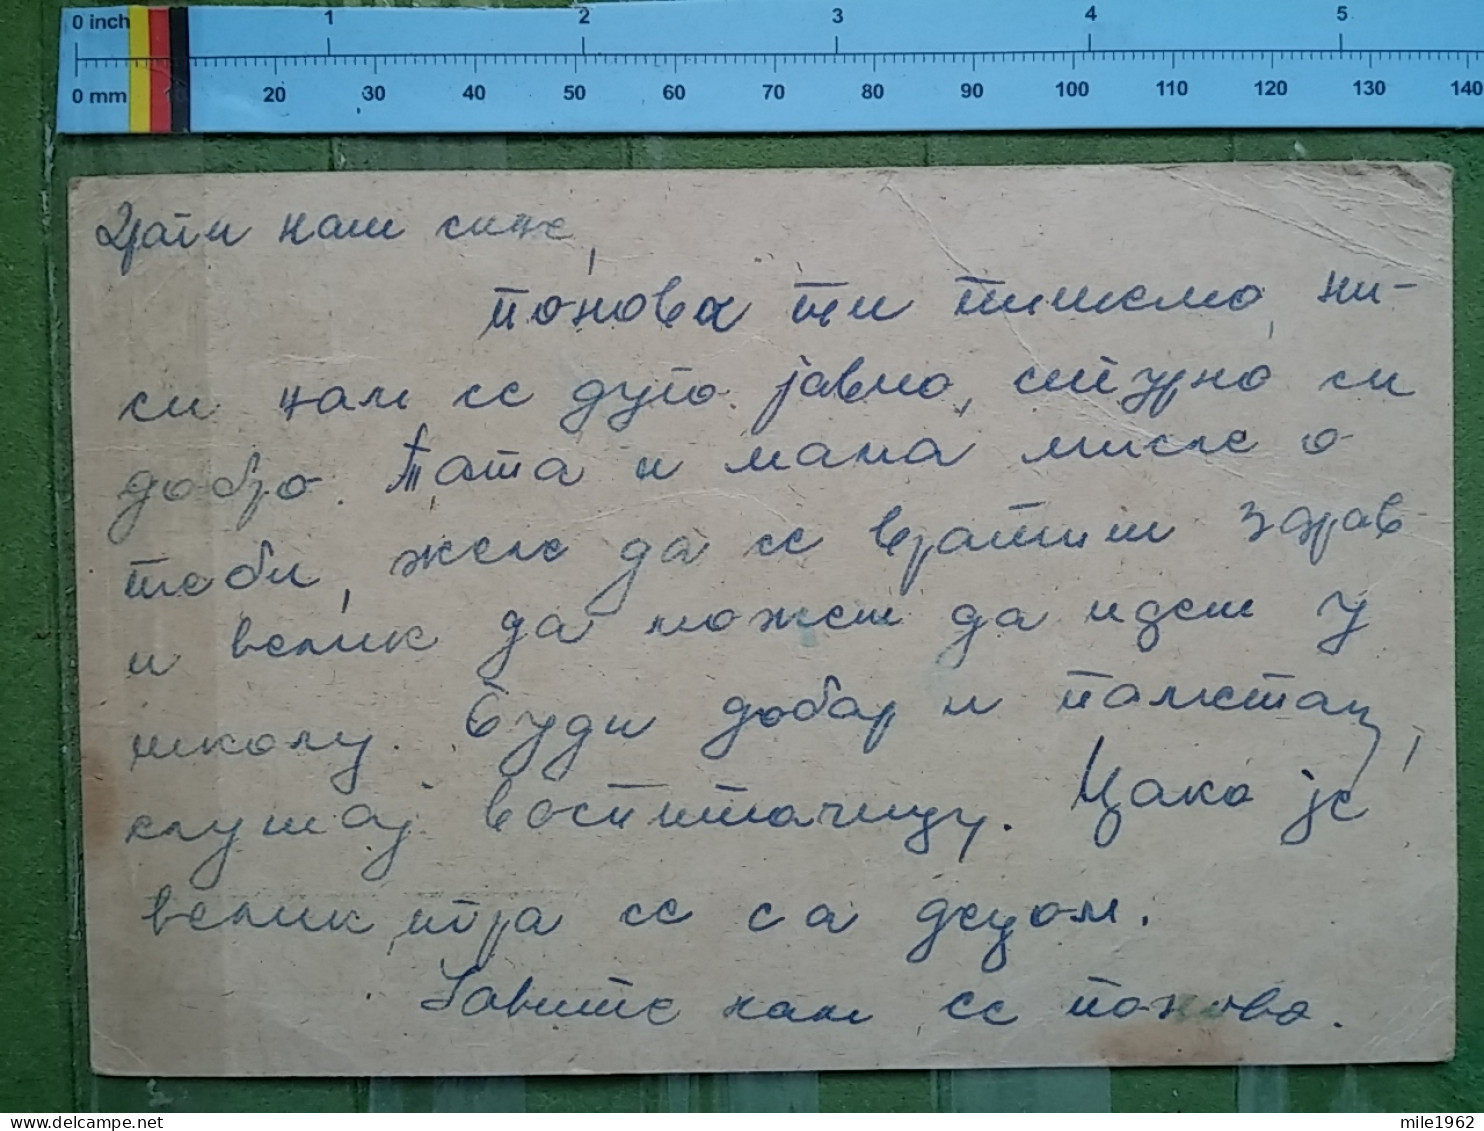 0 inch 1 2 3 4 5
0 mm 10 20 30 40 50 60 70 80 90 100 110 120 130 140
Драги наш сине,
поново ти пишемо, ни-
си нам се дуго јавио, сигурно си
добро. Тата и мама мисле о
теби, желе да се вратиш здрав
и велик да можеш да идеш у
школу. Буди добар и паметан,
слушај воспитачицу. Цако је
велик, игра се са децом.
Јавите нам се поново.
mile1962